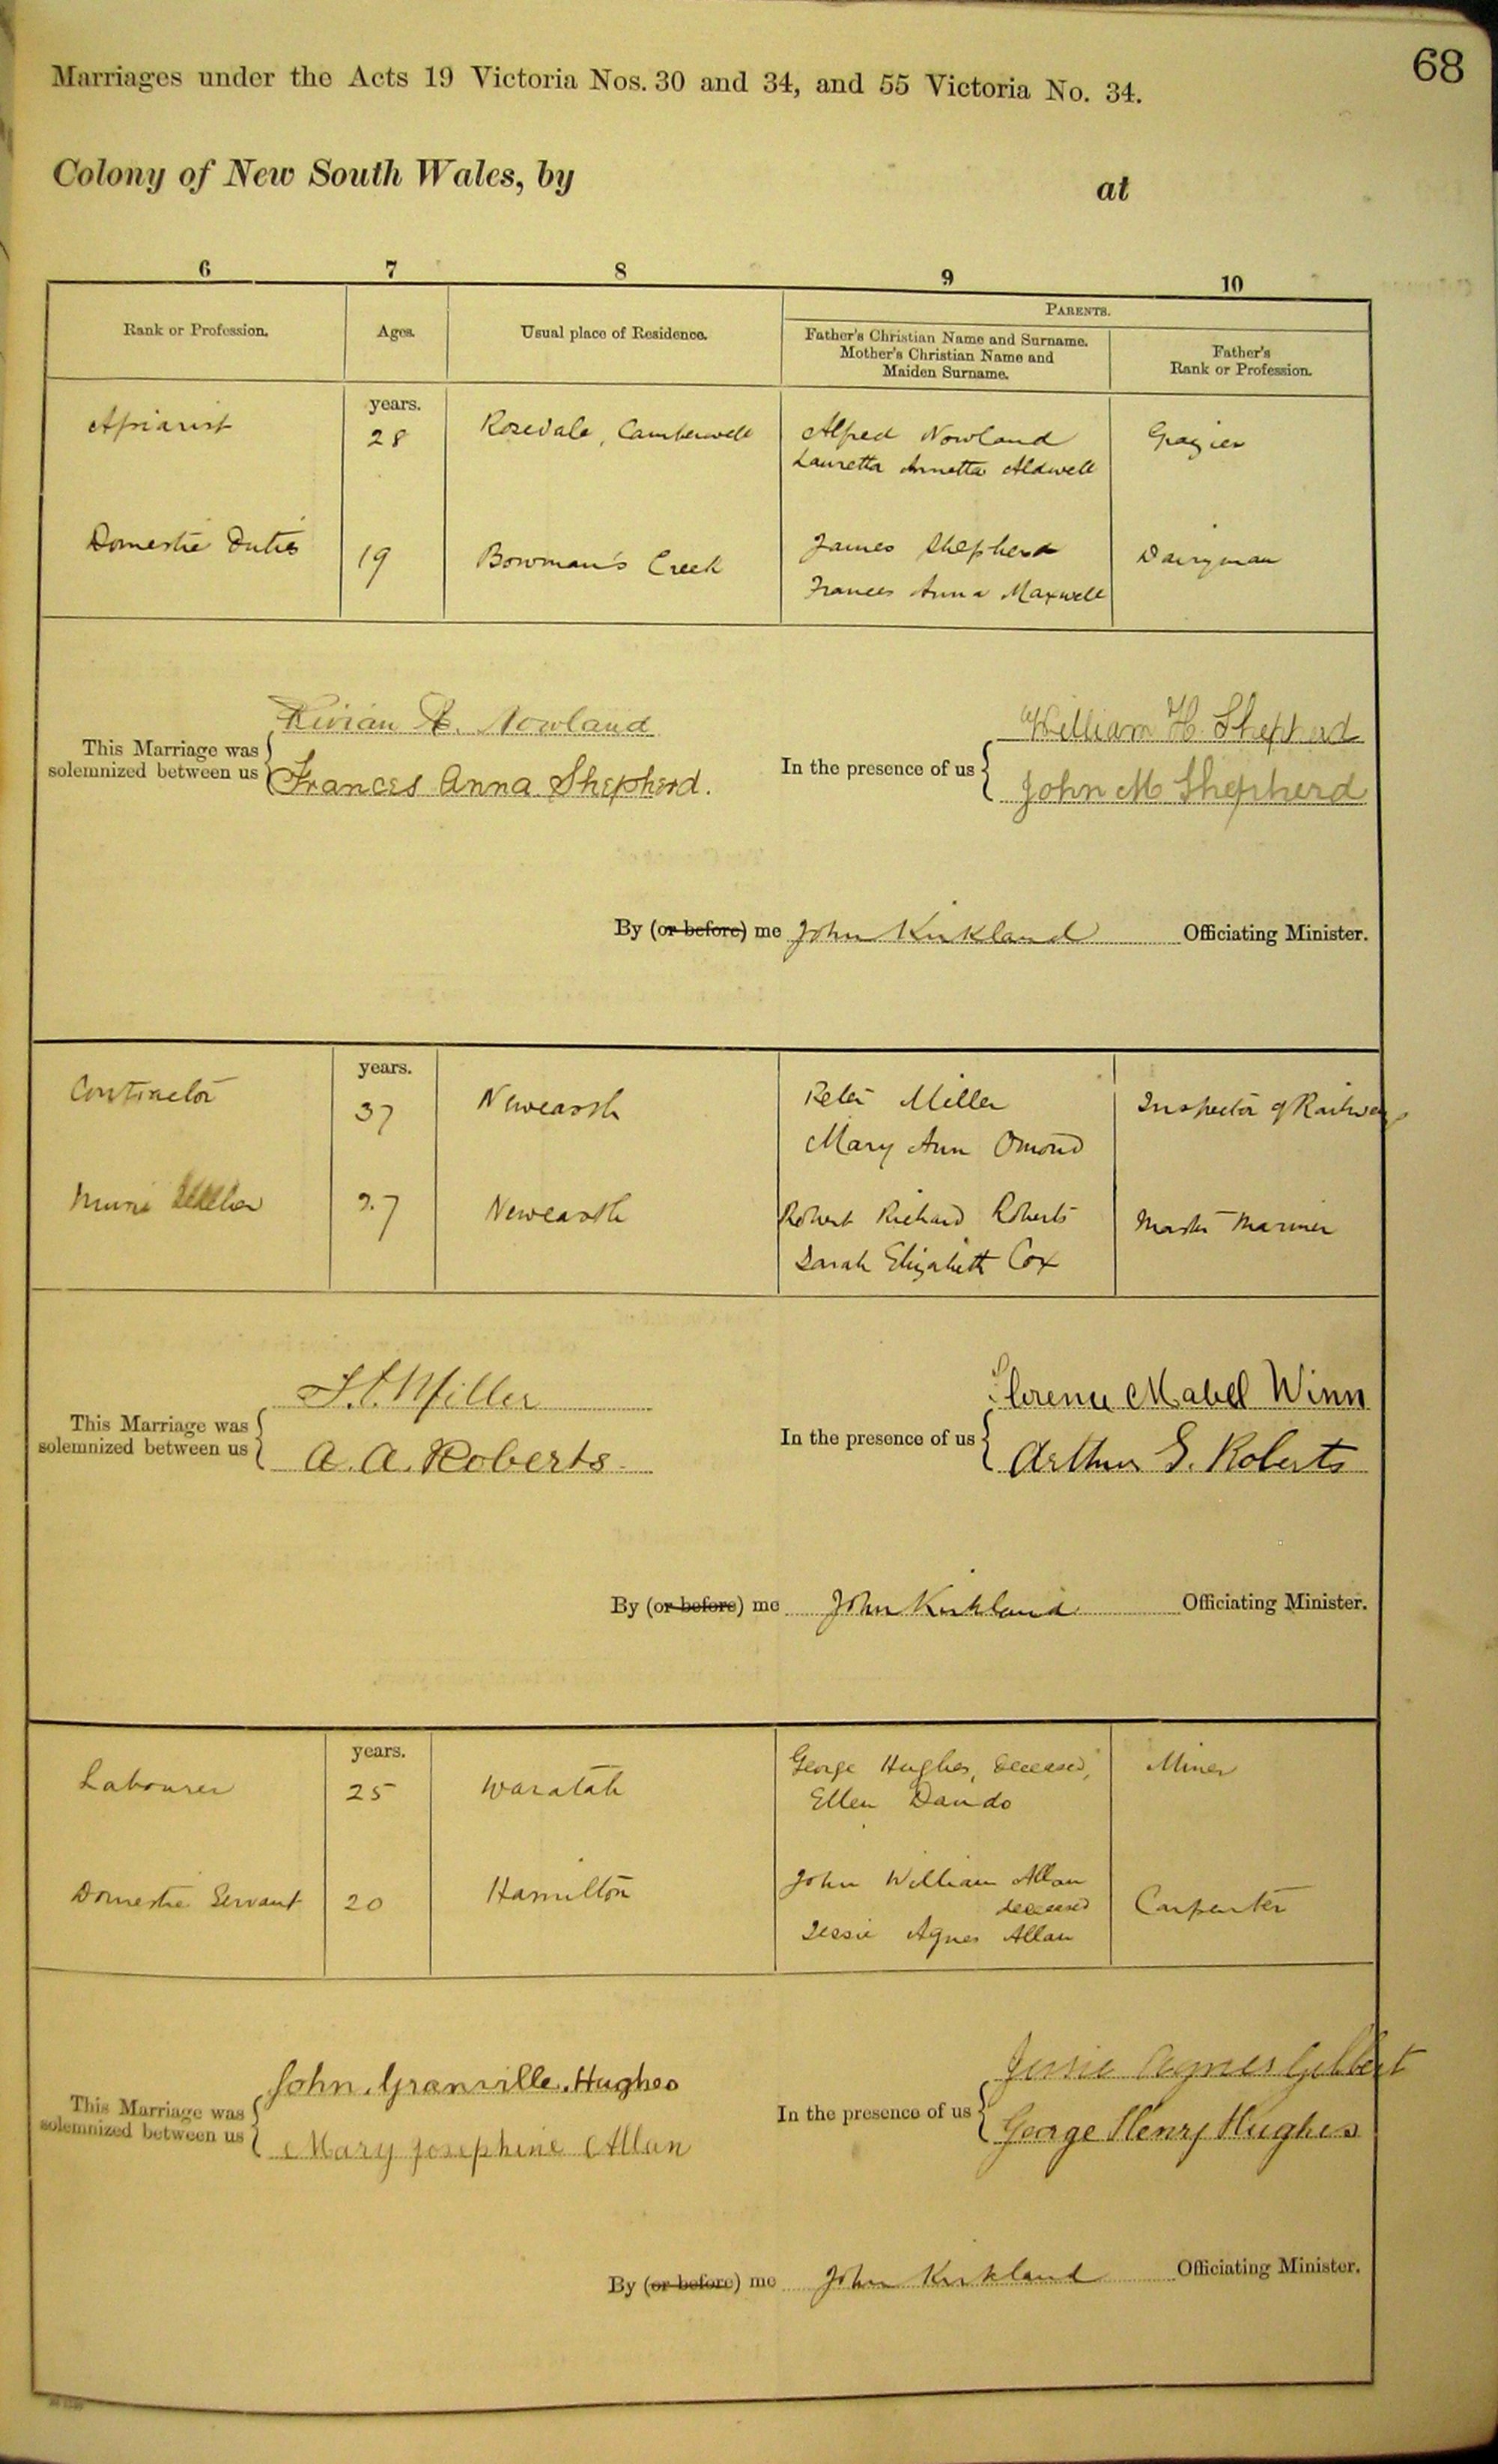 68
Marriages under the Acts 19 Victoria Nos. 30 and 34, and 55 Victoria No. 34.
Colony of New South Wales, by at
6 7 8 9 10
Rank or Profession. Ages. Usual place of Residence. PARENTS.
Father's Christian Name and Surname.
Mother's Christian Name and
Maiden Surname.
Father's
Rank or Profession.
years.
Apiarist 28 Rosedale, Camberwell Alfred Nowland Grazier
Lauretta Annetta Aldwell
Domestic Duties 19 Bowman's Creek James Shepherd Dairyman
Frances Anna Maxwell
This Marriage was
solemnized between us
Nowland
Frances Anna Shepherd.
In the presence of us
William H. Shepherd
John M Shepherd
By (or before) me John Kirkland Officiating Minister.
years.
Contractor 37 Newcastle Peter Miller Inspector of Railways
Mary Ann Omond
27 Newcastle Robert Richard Roberts Master Mariner
Sarah Elizabeth Cox
This Marriage was
solemnized between us
Miller
A. A. Roberts.
In the presence of us
Florence Mabel Winn
Arthur S. Roberts
By (or before) me John Kirkland Officiating Minister.
years.
Labourer 25 Waratah George Hughes, deceased, Miner
Ellen Dando
Domestic Servant 20 Hamilton John William Allan Carpenter
deceased
Jessie Agnes Allan
This Marriage was
solemnized between us
John Granville Hughes
Mary Josephine Allan
In the presence of us
Jessie Agnes Gilbert
George Henry Hughes
By (or before) me John Kirkland Officiating Minister.